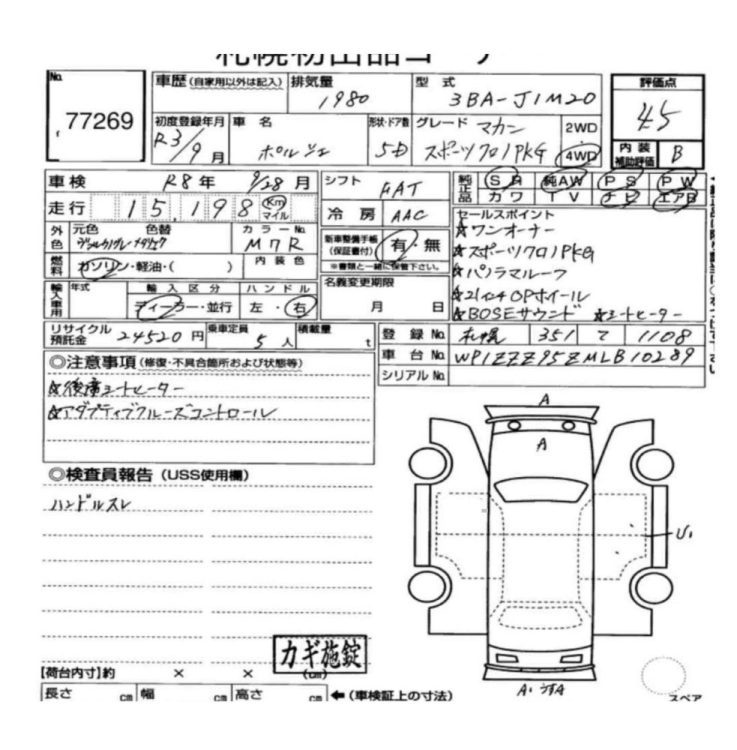 No.
77269
車歴(自家用以外は記入) 排気量 型式 評価点
1980 3BA-J1M20 45
初度登録年月 車名 形状・ドア数 グレード
R3/9月 ポルシェ 5D マカン スポーツクロノPKG
2WD
4WD
内装補助評価 B
車検 R8年 9/28月
シフト FAT
純正品 SR 純AW PS PW
カワ TV ナビ エアB
走行 15,198 Km マイル
冷房 AAC
セールスポイント
☆ワンオーナー
☆スポーツクロノPKG
☆パノラマルーフ
☆21インチOPホイール
☆BOSEサウンド ☆シートヒーター
外色 元色 色替 カラーNo.
M7R
新車整備手帳(保証書付) 有・無
※書類と一緒に保管下さい。
燃料 ガソリン・軽油・( ) 内装色
名義変更期限
月 日
輸入車用 年式 輸入区分 ハンドル
ディーラー・並行 左・右
リサイクル預託金 24520円 乗車定員 5人 積載量 t
登録No. 札幌 351 て 1108
車台No. WP1ZZZ95ZMLB10289
シリアルNo.
◎注意事項(修復・不具合箇所および状態等)
☆後席シートヒーター
☆アダプティブクルーズコントロール
A
A
◎検査員報告(USS使用欄)
ハンドルスレ
U1
カギ施錠
【荷台内寸】約 × × (cm)
長さ cm 幅 cm 高さ cm ←(車検証上の寸法)
スペア